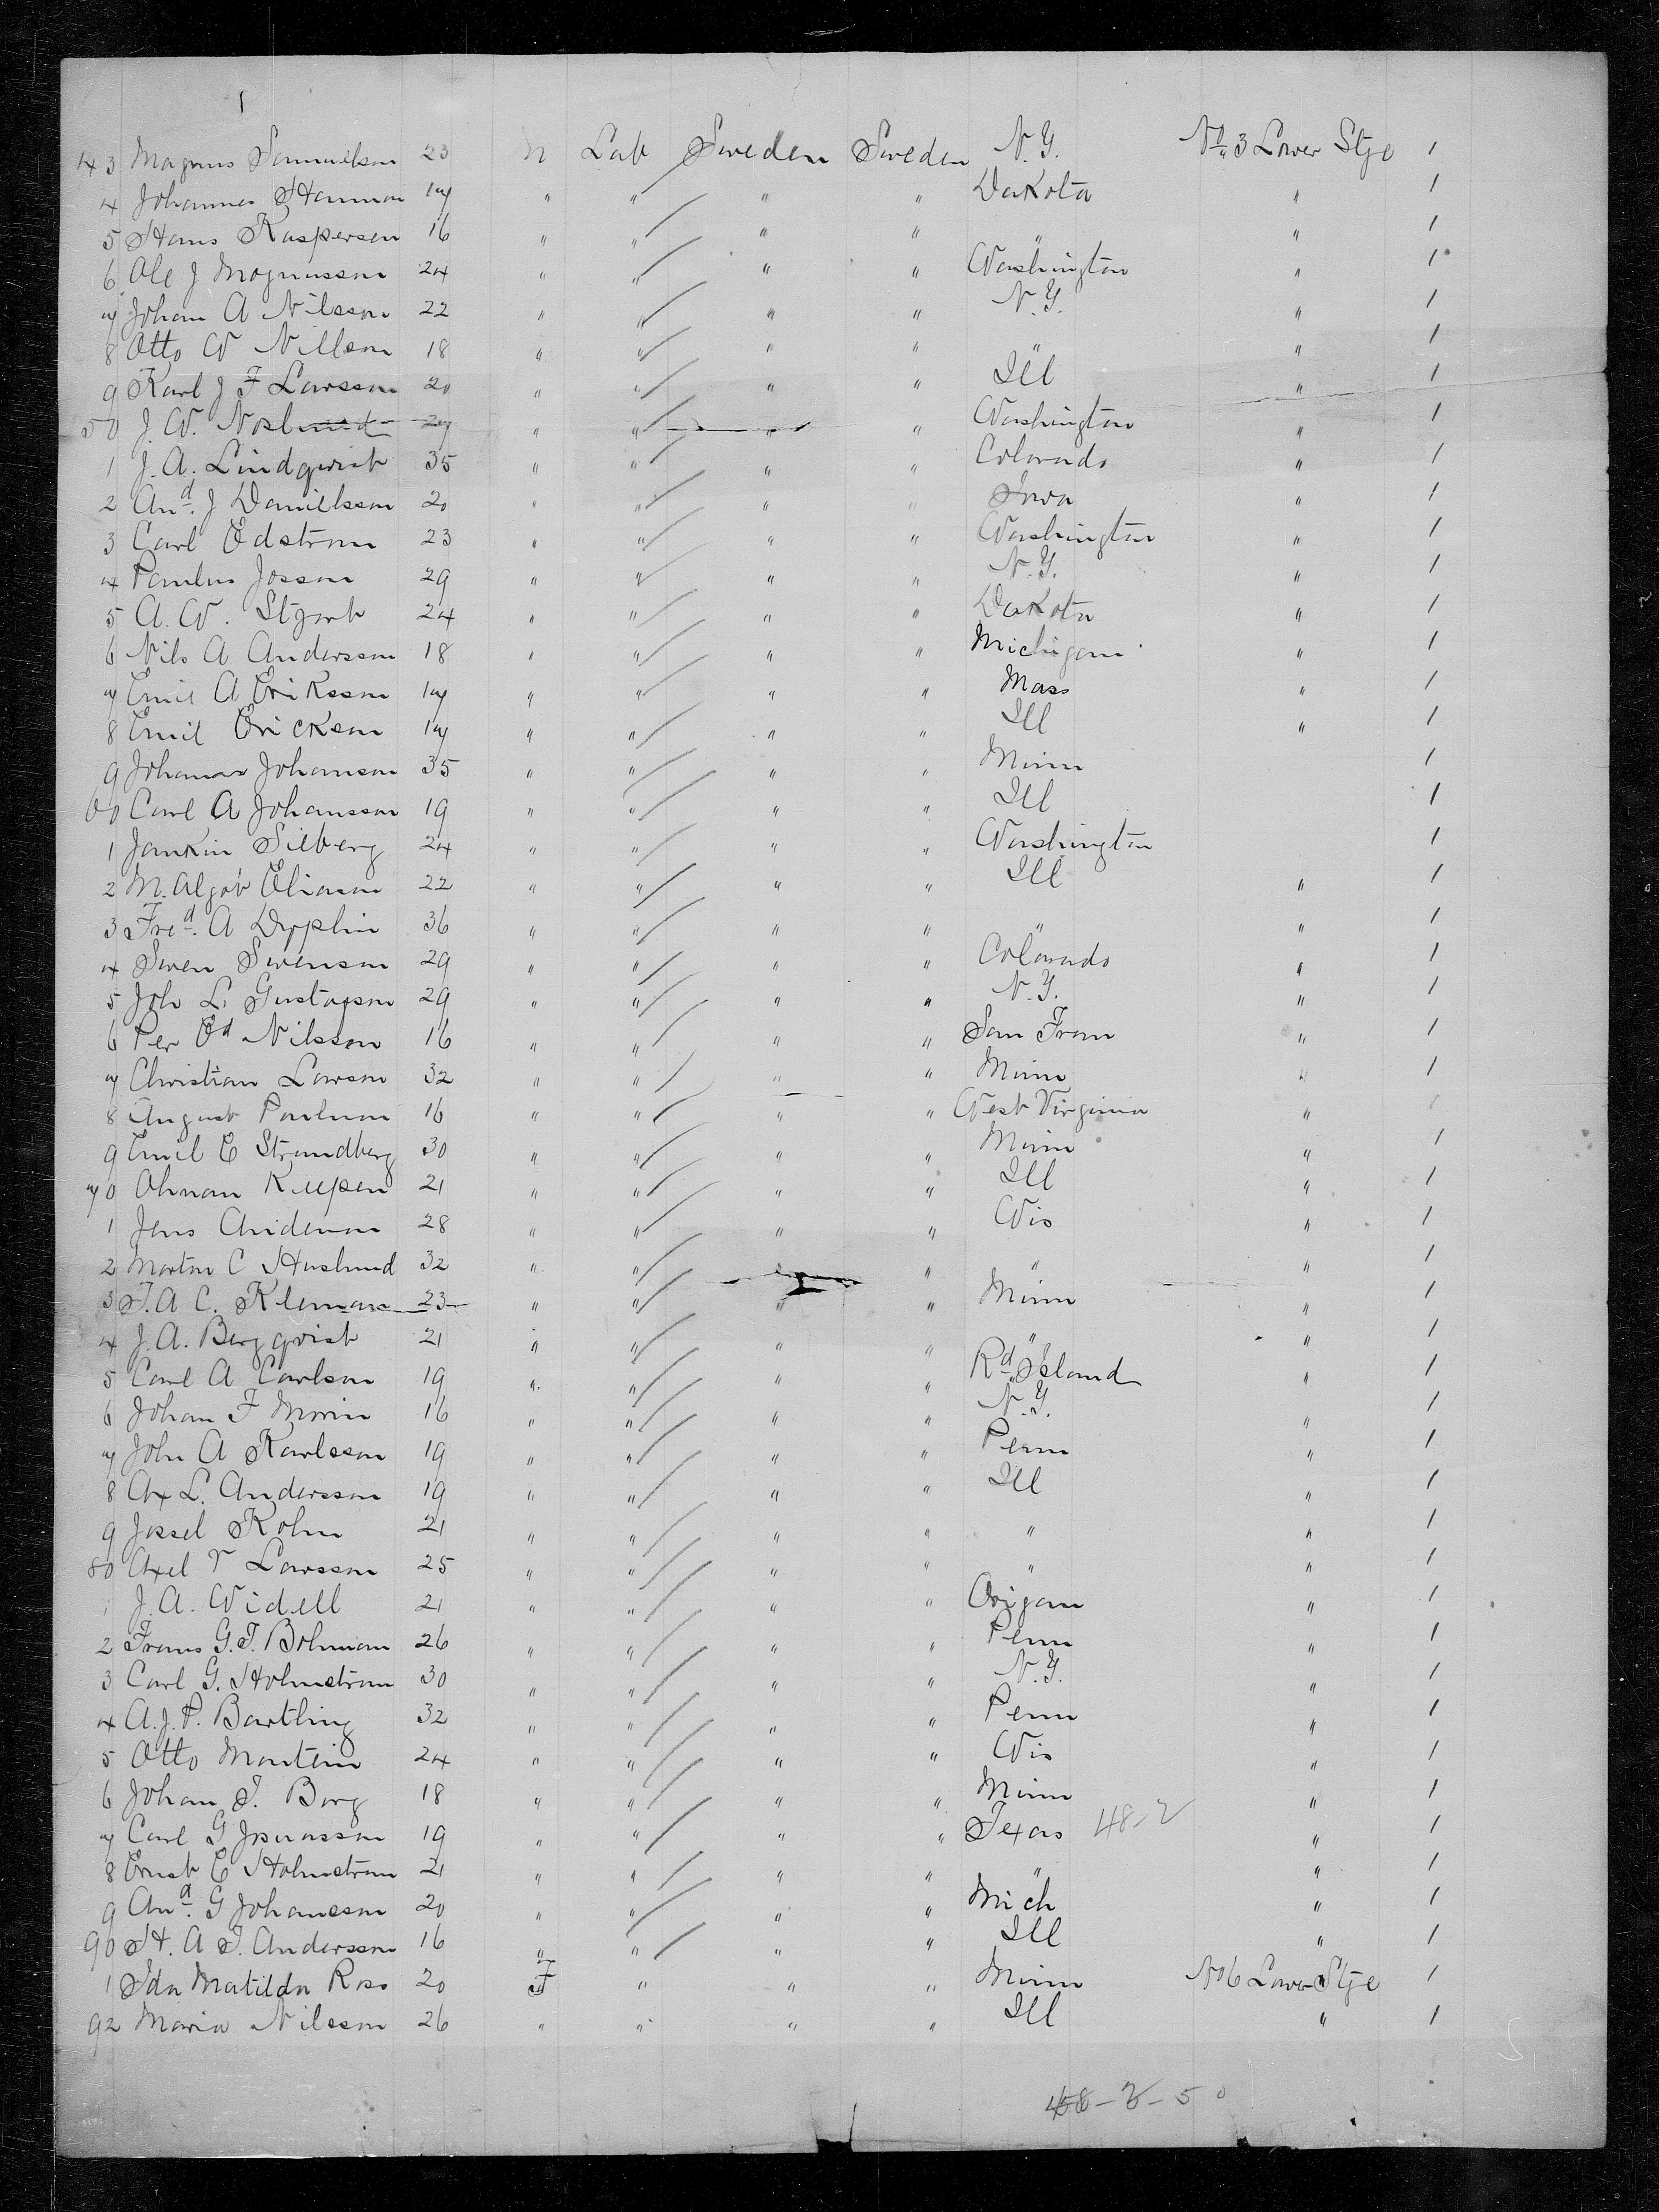 1
43 Magnus Samuelson 23 m Lab Sweden Sweden N.Y. No 3 Lower Stge 1
4 Johannes Hanman 17 " " " " Dakota " 1
5 Hans Kaspersen 16 " " " " " " 1
6 Ole J Magnusson 24 " " " " Washington " 1
7 Johan A Nilsson 22 " " " " N.Y. " 1
8 Otto W Nillson 18 " " " " " " 1
9 Karl J F Larsson 20 " " " " Ill " 1
50 J. W. Noslund 27 " " " " Washington " 1
1 J. A. Lindqvist 35 " " " " Colorado " 1
2 And. J Daniellsson 20 " " " " Iowa " 1
3 Carl Edstrom 23 " " " " Washington " 1
4 Paulus Josson 29 " " " " N.Y. " 1
5 A. W. 24 " " " " Dakota " 1
6 Nils A Andersson 18 " " " " Michigan " 1
7 Emil A Eriksson 17 " " " " Mass " 1
8 Emil Erickson 17 " " " " Ill " 1
9 Johannes Johanson 35 " " " " Minn 1
60 Carl A Johansson 19 " " " " Ill 1
1 Silberg 24 " " " " Washington 1
2 M. Eliason 22 " " " " Ill " 1
3 Fred. A 36 " " " " " " 1
4 Swen Swenson 29 " " " " Colorado " 1
5 Joh L Gustafson 29 " " " " N.Y. " 1
6 Per Ed Nilsson 16 " " " " San Fran " 1
7 Christian Larson 32 " " " " Minn " 1
8 August 16 " " " " West Virginia " 1
9 Emil E Strandberg 30 " " " " Minn " 1
70 21 " " " " Ill " 1
1 Jens Anderson 28 " " " " Wis " 1
2 Morton C Haslund 32 " " " " " " 1
3 J. A C. Kleman 23 " " " " Minn " 1
4 J. A. Bergqvist 21 " " " " " " 1
5 Carl A Carlson 19 " " " " Rd Island " 1
6 Johan F Morin 16 " " " " N.Y. " 1
7 John A Karlsson 19 " " " " Penn " 1
8 Ax L. Andersson 19 " " " " Ill " 1
9 Jossel Kohn 21 " " " " " " 1
80 Axel T Larsson 25 " " " " " " 1
1 J. A. Widell 21 " " " " Origan " 1
2 Frans G. T. Bohman 26 " " " " Penn " 1
3 Carl G. Holmstrom 30 " " " " N.Y. " 1
4 A. J. P. Bartling 32 " " " " Penn " 1
5 Otto Montein 24 " " " " Wis " 1
6 Johan T. Borg 18 " " " " Minn " 1
7 Carl G 19 " " " " Texas 48-2 " 1
8 Ernst E Holmstrom 21 " " " " " " 1
9 And. G Johansson 20 " " " " Mich " 1
90 H. A J. Andersson 16 " " " " Ill " 1
1 Ida Matilda Ross 20 F " " " Minn No 6 Lower Stge 1
92 Maria Nilsson 26 " " " " Ill " 1